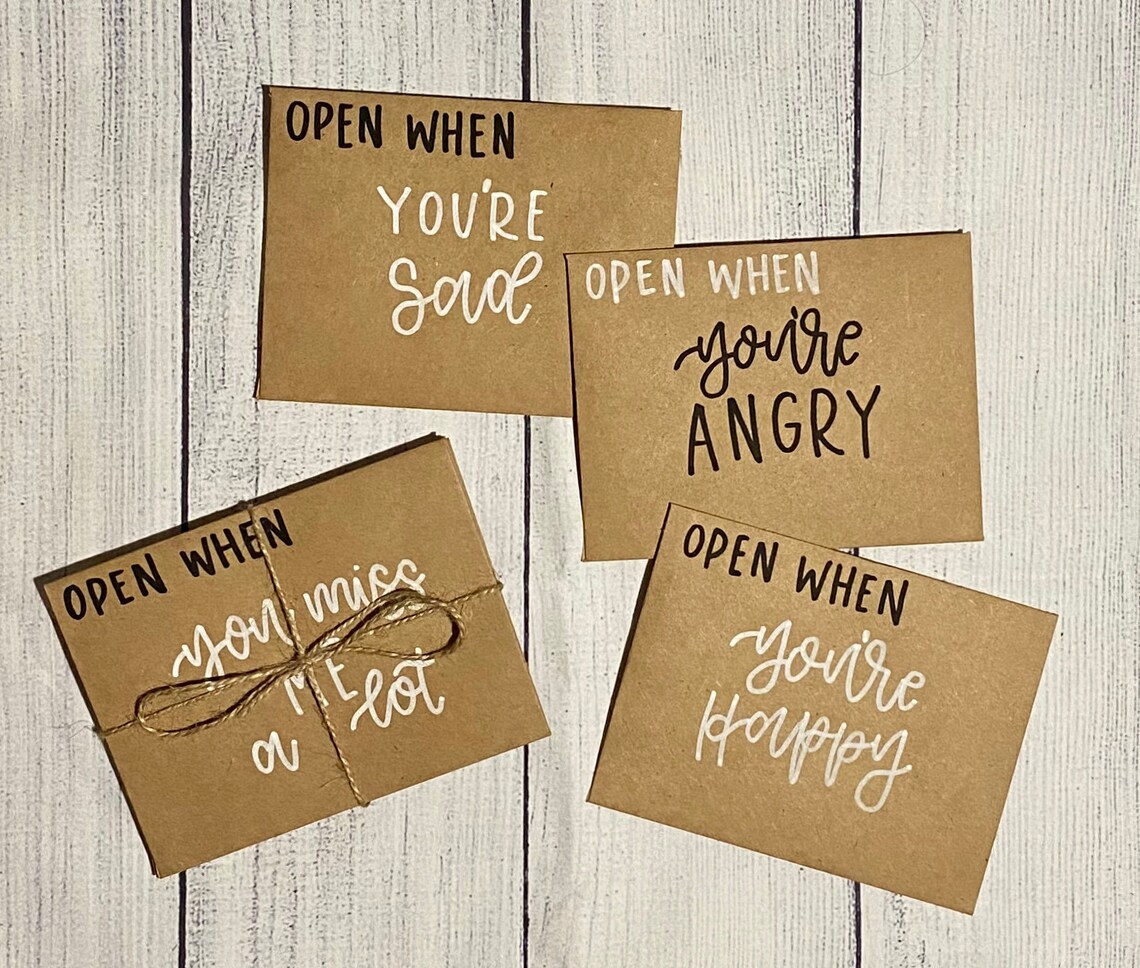 OPEN WHEN
YOU'RE
Sad
OPEN WHEN
you're
ANGRY
OPEN WHEN
you miss
ME
a lot
OPEN WHEN
you're
Happy